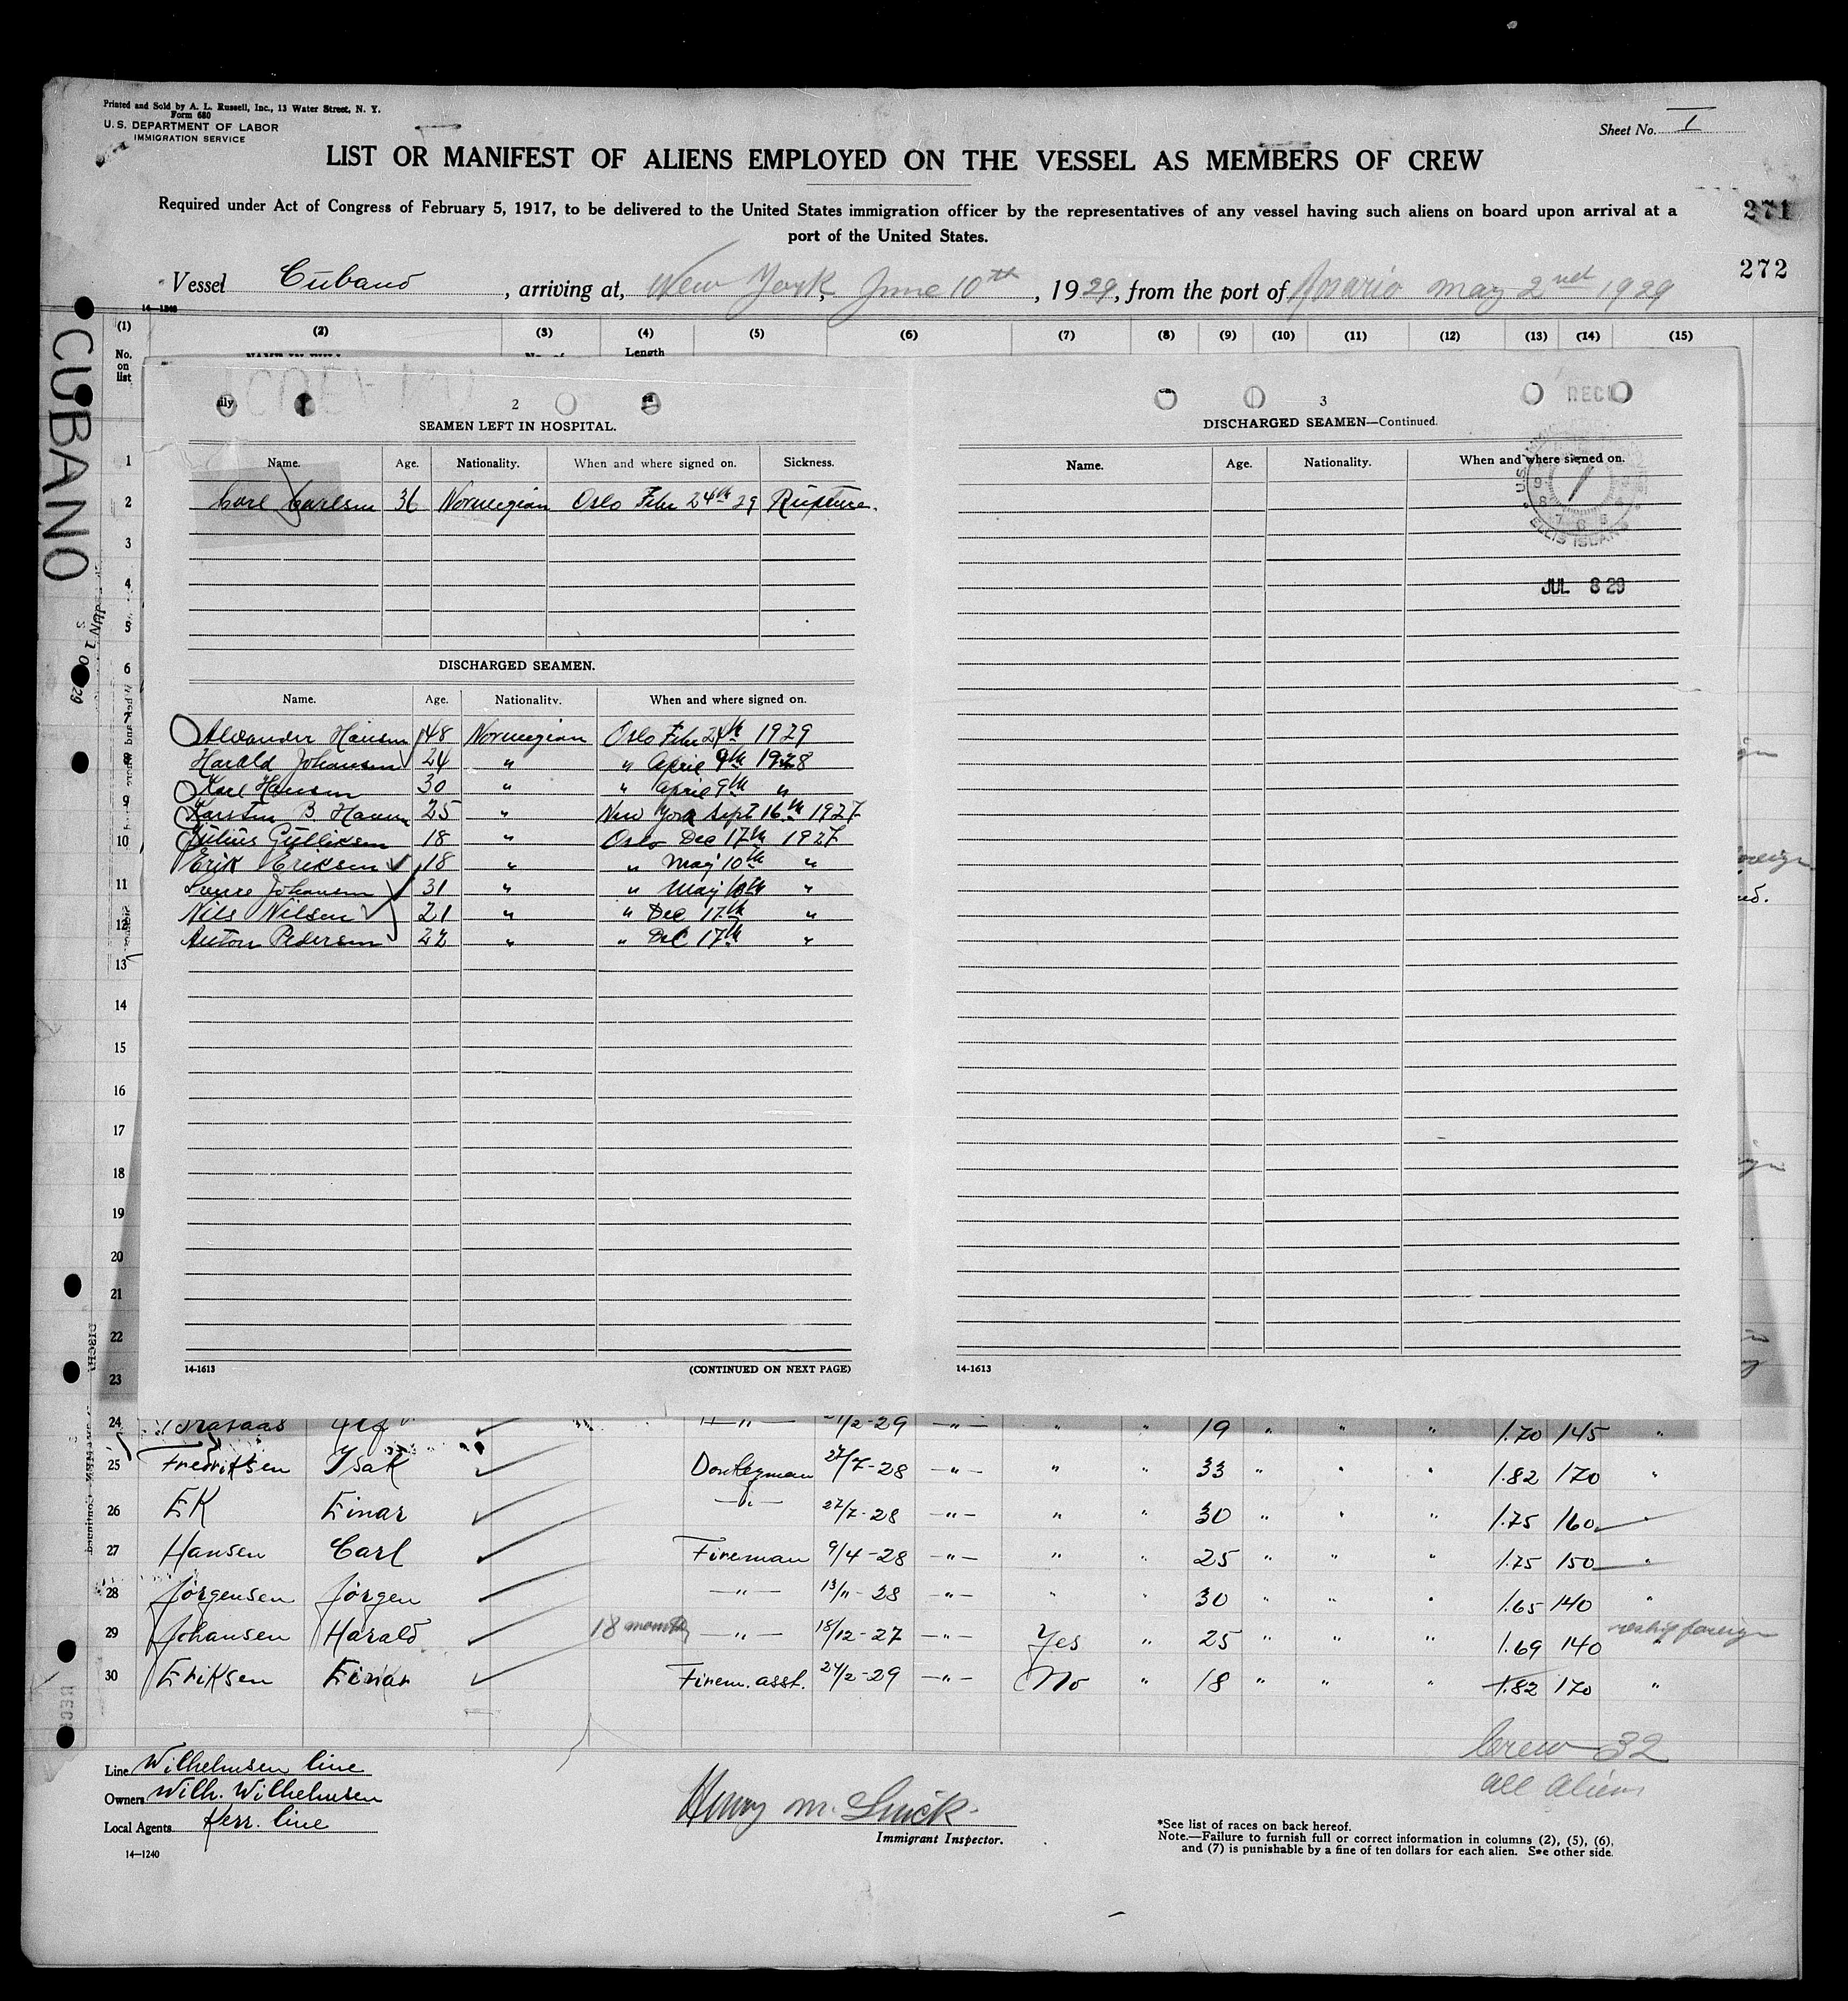 Printed and Sold by A. L. Russell, Inc., 13 Water Street, N. Y.
Form 680
U. S. DEPARTMENT OF LABOR
IMMIGRATION SERVICE
Sheet No. I
LIST OR MANIFEST OF ALIENS EMPLOYED ON THE VESSEL AS MEMBERS OF CREW
Required under Act of Congress of February 5, 1917, to be delivered to the United States immigration officer by the representatives of any vessel having such aliens on board upon arrival at a
port of the United States.
271
272
Vessel Cubano, arriving at, New York, June 10th, 1929, from the port of Rosario May 2nd 1929
14—1240
(1) (2) (3) (4) (5) (6) (7) (8) (9) (10) (11) (12) (13) (14) (15)
No. on list
Length
CUBANO
2
SEAMEN LEFT IN HOSPITAL.
Name. Age. Nationality. When and where signed on. Sickness.
Carl Carlsen 36 Norwegian Oslo Febr 24th 29 Rupture.
DISCHARGED SEAMEN.
Name. Age. Nationality. When and where signed on.
Alexander Hansen 48 Norwegian Oslo Febr 24th 1929
Harald Johansen 24 " " April 9th 1928
Karl Hansen 30 " " April 9th "
Karsten B. Hansen 25 " New York Sept 16th 1927
Julius Gulliksen 18 " Oslo Dec 17th 1927
Erik Eriksen 18 " " May 10th "
Johansen 31 " " May 10th "
Nils Nilsen 21 " " Dec 17th "
Anton Pedersen 22 " " Dec 17th "
14-1613 (CONTINUED ON NEXT PAGE)
3
RECD
DISCHARGED SEAMEN—Continued.
Name. Age. Nationality. When and where signed on.
ELLIS ISLAND
JUL 8 29
14-1613
1
2
3
4
5
6
7
8
9
10
11
12
13
14
15
16
17
18
19
20
21
22
23
24 /2-29 —"— " " 19 " " " 1.70 145 "
25 Fredriksen Isak Donkeyman 27/7-28 —"— " " 33 " " " 1.82 170 "
26 Ek Einar —"— 27/7-28 —"— " " 30 " " " 1.75 160 "
27 Hansen Carl Fireman 9/4-28 —"— " " 25 " " " 1.75 150 "
28 Jörgensen Jörgen —"— 13/11-28 —"— " " 30 " " " 1.65 140 "
29 Johansen Harald 18 months —"— 18/12-27 —"— Yes " 25 " " " 1.69 140 " reship foreign
30 Eriksen Einar Firem. asst. 24/2-29 —"— No " 18 " " " 1.82 170 "
Crew 32
all aliens
Line Wilhelmsen line
Owners Wilh. Wilhelmsen
Local Agents Kerr. line
14—1240
Henry M. Smick
Immigrant Inspector.
*See list of races on back hereof.
Note.—Failure to furnish full or correct information in columns (2), (5), (6),
and (7) is punishable by a fine of ten dollars for each alien. See other side.